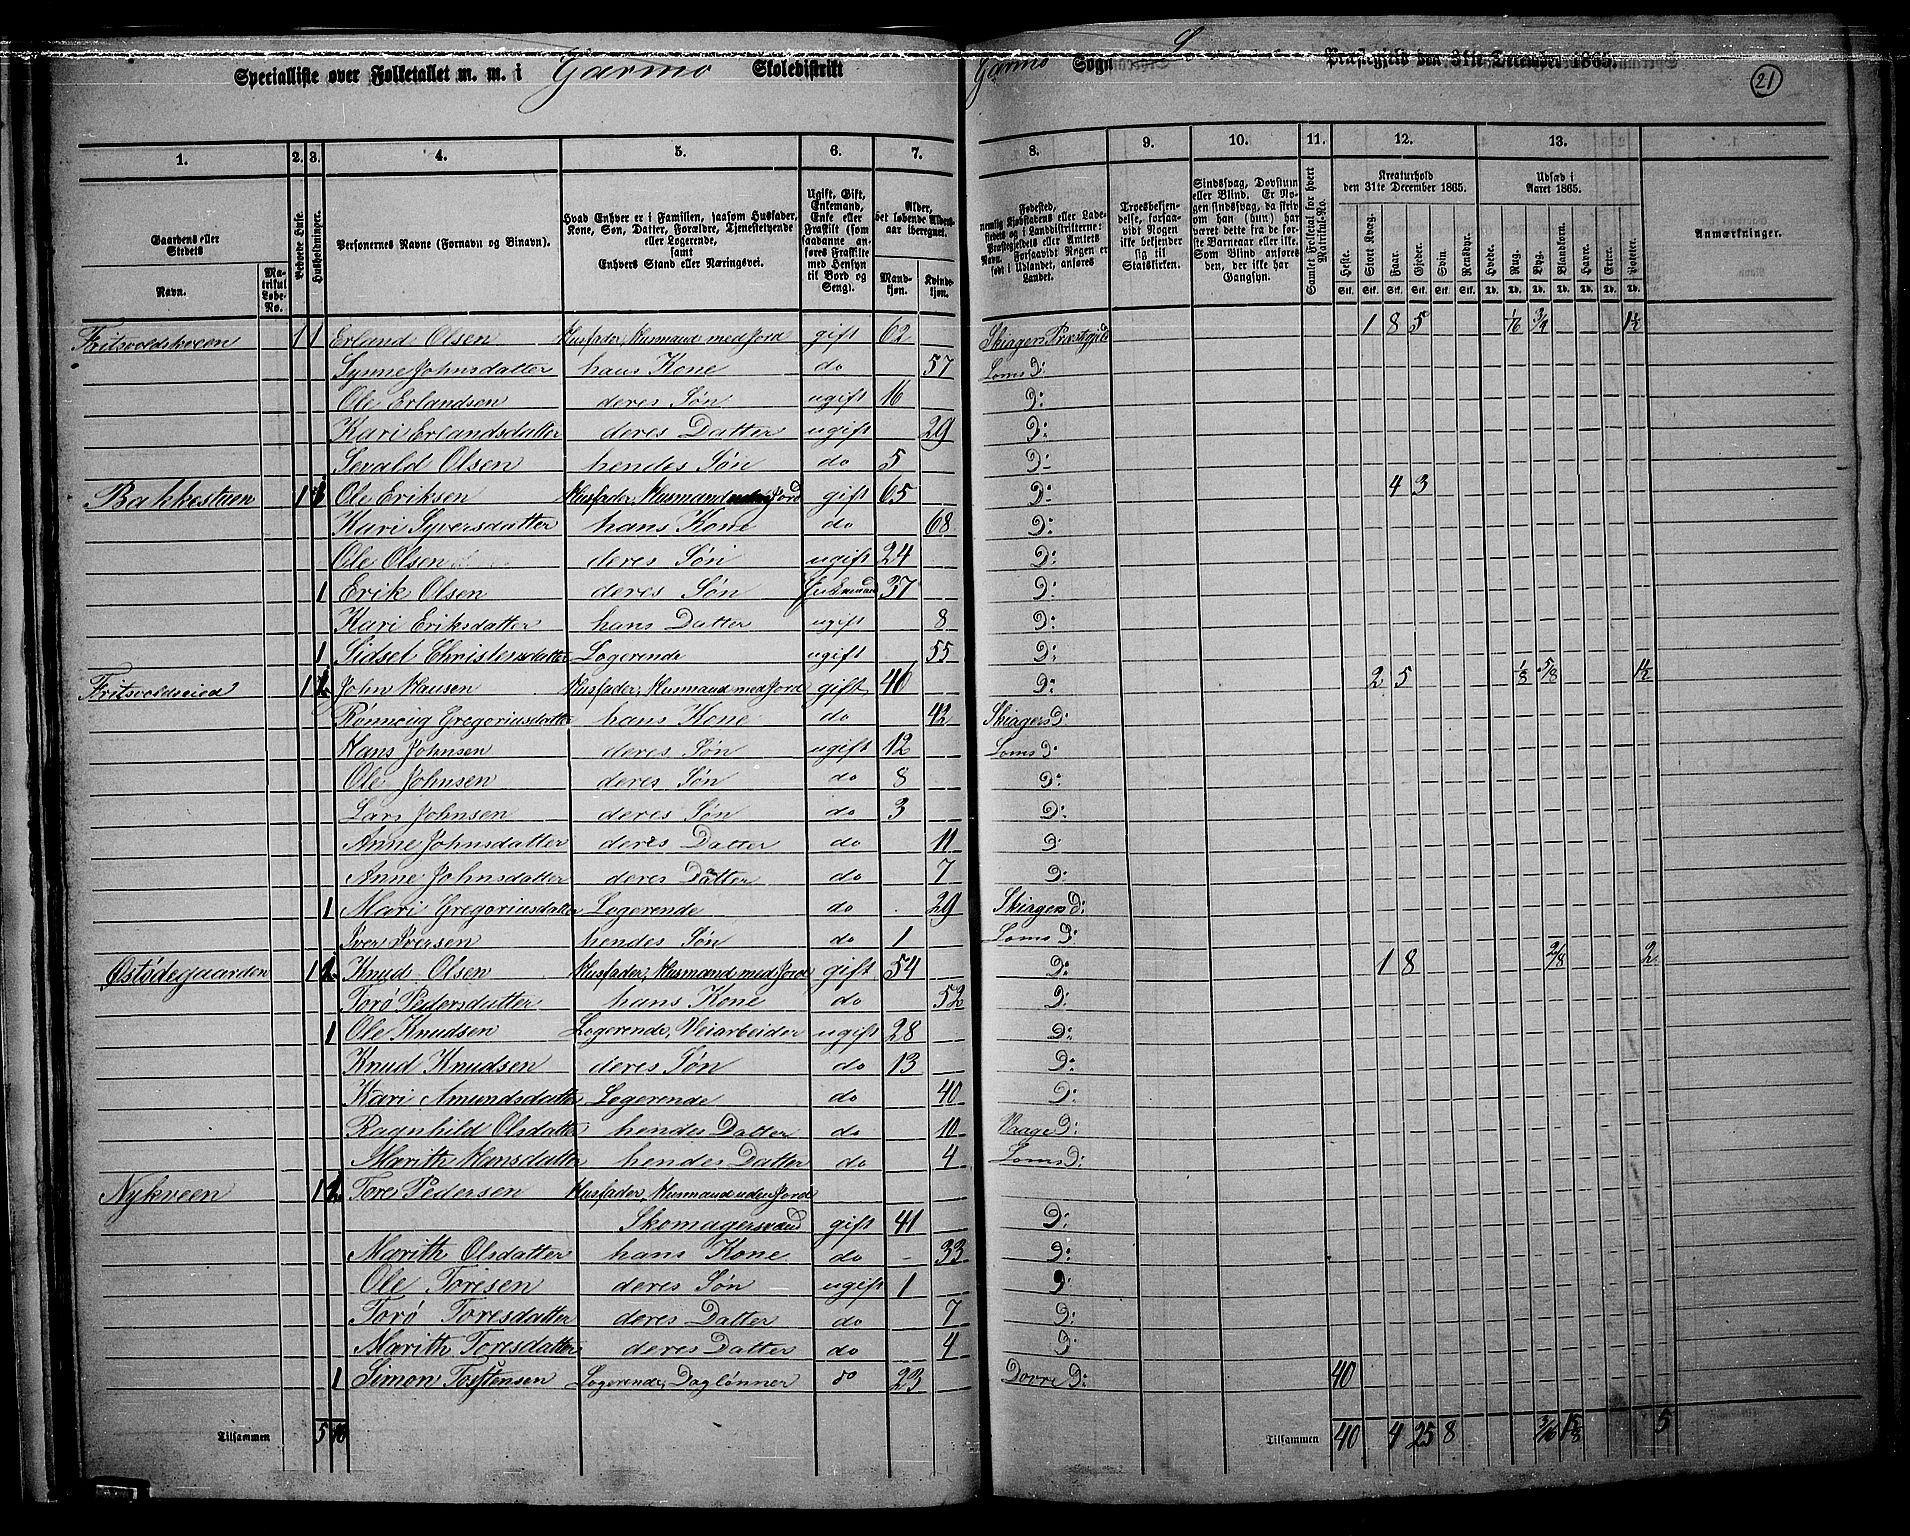 Specialliste over Folketallet m. m. i Garmo Skoledistrikt Garmo Sogn Præstegjeld den 31te December 1865.
21
1. 2. 3. 4. 5. 6. 7. 8. 9. 10. 11. 12. 13.
Gaardens eller Stedets Navn. Matrikul Løbe-No. Bebyede Huse. Husholdninger. Personernes Navne (Fornavn og Binavn). Hvad Enhver er i Familien, saasom Husfader, Kone, Søn, Datter, Forældre, Tjenestetyende eller Logerende, samt Enhvers Stand eller Næringsvei. Ugift, Gift, Enkemand, Enke eller Fraskilt (som saadanne anføres Fraskilte med Hensyn til Bord og Seng). Alder, det løbende Alders-aar iberegnet. Mandkjøn. Kvindekjøn. Fødested, nemlig Kjøbstadens eller Ladestedets og i Landdistrikterne: Præstegjeldets eller Amtets Navn. Forsaavidt Nogen er født i Udlandet, anføres Landet. Troesbekjendelse, forsaavidt Nogen ikke bekjender sig til Statskirken. Sindssvag, Døvstum eller Blind. Er Nogen sindssvag, da skrives om han (hun) har været dette fra første Barneaar eller ikke. Som Blind anføres den, der ikke har Gangsyn. Samlet Folketal for hvert Matrikul-No. Kreaturhold den 31te December 1865. Heste. Stort Kvæg. Faar. Gjeder. Svin. Rensdyr. Udsæd i Aaret 1865. Hvede. Rug. Byg. Blandkorn. Havre. Erter. Poteter. Anmærkninger.
Fritsvoldskveen 1 1 Erland Olsen Husfader, Husmand med Jord gift 62 Skiagers Præstgjeld 1 8 5 1/16 3/4 1½
Synne Johnsdatter hans Kone do 57 Loms D:
Ole Erlandsen deres Søn ugift 16 D:
Kari Erlandsdatter deres Datter ugift 29 D:
Sevald Olsen hendes Søn do 5 D:
Bakkestuen 1 1 Ole Eriksen Husfader, Husmand uden Jord gift 65 D: 4 3
Kari Syversdatter hans Kone do 68 D:
Ole Olsen deres Søn ugift 24 D:
1 Erik Olsen deres Søn Enkemand 37 D:
Kari Eriksdatter hans Datter ugift 8 D:
1 Sidsel Christensdatter Logerende ugift 55 D:
Fritsvoldseied 1 1 John Hansen Husfader, Husmand med Jord gift 40 D: 2 5 1/8 5/8 1½
Rønnoug Gregoriusdatter hans Kone do 42 Skiagers D:
Hans Johnsen deres Søn ugift 12 Loms D:
Ole Johnsen deres Søn do 8 D:
Lars Johnsen deres Søn do 3 D:
Anne Johnsdatter deres Datter do 11 D:
Anne Johnsdatter deres Datter do 7 D:
1 Mari Gregoriusdatter Logerende do 29 Skiagers D:
Iver Iversen hendes Søn do 1 Loms D:
Østødegaarden 1 1 Knud Olsen Husfader, Husmand med Jord gift 54 D: 1 8 2/8 2
Torø Pedersdatter hans Kone do 52 D:
1 Ole Knudsen Logerende, Veiarbeider ugift 28 D:
Knud Knudsen deres Søn do 13 D:
Kari Amundsdatter Logerende do 40 D:
Ragnhild Olsdatter hendes Datter do 10 Vaage D:
Marith Hansdatter hendes Datter do 4 Loms D:
Nykveen 1 1 Tore Pedersen Husfader, Husmand uden Jord
Skomagersvend gift 41 D:
Marith Olsdatter hans Kone do 33 D:
Ole Toresen deres Søn ugift 1 D:
Torø Toresdatter deres Datter do 7 D:
Marith Toresdatter deres Datter do 4 D:
1 Simon Torstensen Logerende, Daglønner do 23 Dovre D: 40
Tilsammen 5 10 Tilsammen 40 4 25 8 3/16 1 5/8 5